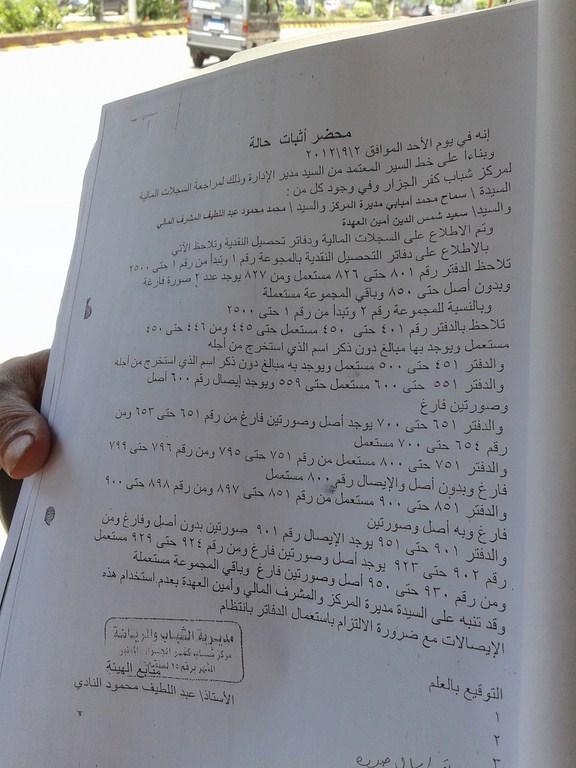 محضر أثبات حالة
إنه في يوم الأحد الموافق ٢٠١٢/٩/٢
وبناءا على خط السير المعتمد من السيد مدير الإدارة وذلك لمراجعة السجلات المالية
لمركز شباب كفر الجزار وفي وجود كل من :
السيدة \ سماح محمد امبابي مديرة المركز والسيد \ محمد محمود عبد اللطيف المشرف المالي
والسيد\ سعيد شمس الدين أمين العهدة
وتم الاطلاع على السجلات المالية ودفاتر تحصيل النقدية وتلاحظ الأتي
بالاطلاع على دفاتر التحصيل النقدية بالمجوعة رقم ١ وتبدأ من رقم ١ حتى ٢٥٠٠
تلاحظ الدفتر رقم ٨٠١ حتى ٨٢٦ مستعمل ومن ٨٢٧ يوجد عدد ٢ صورة فارغة
وبدون أصل حتى ٨٥٠ وباقي المجموعة مستعملة
وبالنسبة للمجموعة رقم ٢ وتبدأ من رقم ١ حتى ٢٥٠٠
تلاحظ بالدفتر رقم ٤٠١ حتى ٤٥٠ مستعمل حتى ٤٤٥ ومن ٤٤٦ حتى ٤٥٠
مستعمل ويوجد بها مبالغ دون ذكر اسم الذي استخرج من أجله
والدفتر ٤٥١ حتى ٥٠٠ مستعمل ويوجد به مبالغ دون ذكر اسم الذي استخرج من أجله
والدفتر ٥٥١ حتى ٦٠٠ مستعمل حتى ٥٥٩ ويوجد إيصال رقم ٦٠٠ أصل
وصورتين فارغ
والدفتر ٦٥١ حتى ٧٠٠ يوجد أصل وصورتين فارغ من رقم ٦٥١ حتى ٦٥٣ ومن
رقم ٦٥٤ حتى ٧٠٠ مستعمل
والدفتر ٧٥١ حتى ٨٠٠ مستعمل من رقم ٧٥١ حتى ٧٩٥ ومن رقم ٧٩٦ حتى ٧٩٩
فارغ وبدون أصل والإيصال رقم ٨٠٠ مستعمل
والدفتر ٨٥١ حتى ٩٠٠ مستعمل من رقم ٨٥١ حتى ٨٩٧ ومن رقم ٨٩٨ حتى ٩٠٠
فارغ وبه أصل وصورتين
والدفتر ٩٠١ حتى ٩٥١ يوجد الإيصال رقم ٩٠١ صورتين بدون أصل وفارغ ومن
رقم ٩٠٢ حتى ٩٢٣ يوجد أصل وصورتين فارغ ومن رقم ٩٢٤ حتى ٩٢٩ مستعمل
ومن رقم ٩٣٠ حتى ٩٥٠ أصل وصورتين فارغ وباقي المجموعة مستعملة
وقد تنبه على السيدة مديرة المركز والمشرف المالي وأمين العهدة بعدم استخدام هذه
الإيصالات مع ضرورة الالتزام باستعمال الدفاتر بانتظام
مديرية الشباب والرياضة
مركز شباب كفر الجزار
متابع الهيئة
الأستاذ\ عبد اللطيف محمود النادي
التوقيع بالعلم
١
٢
٣